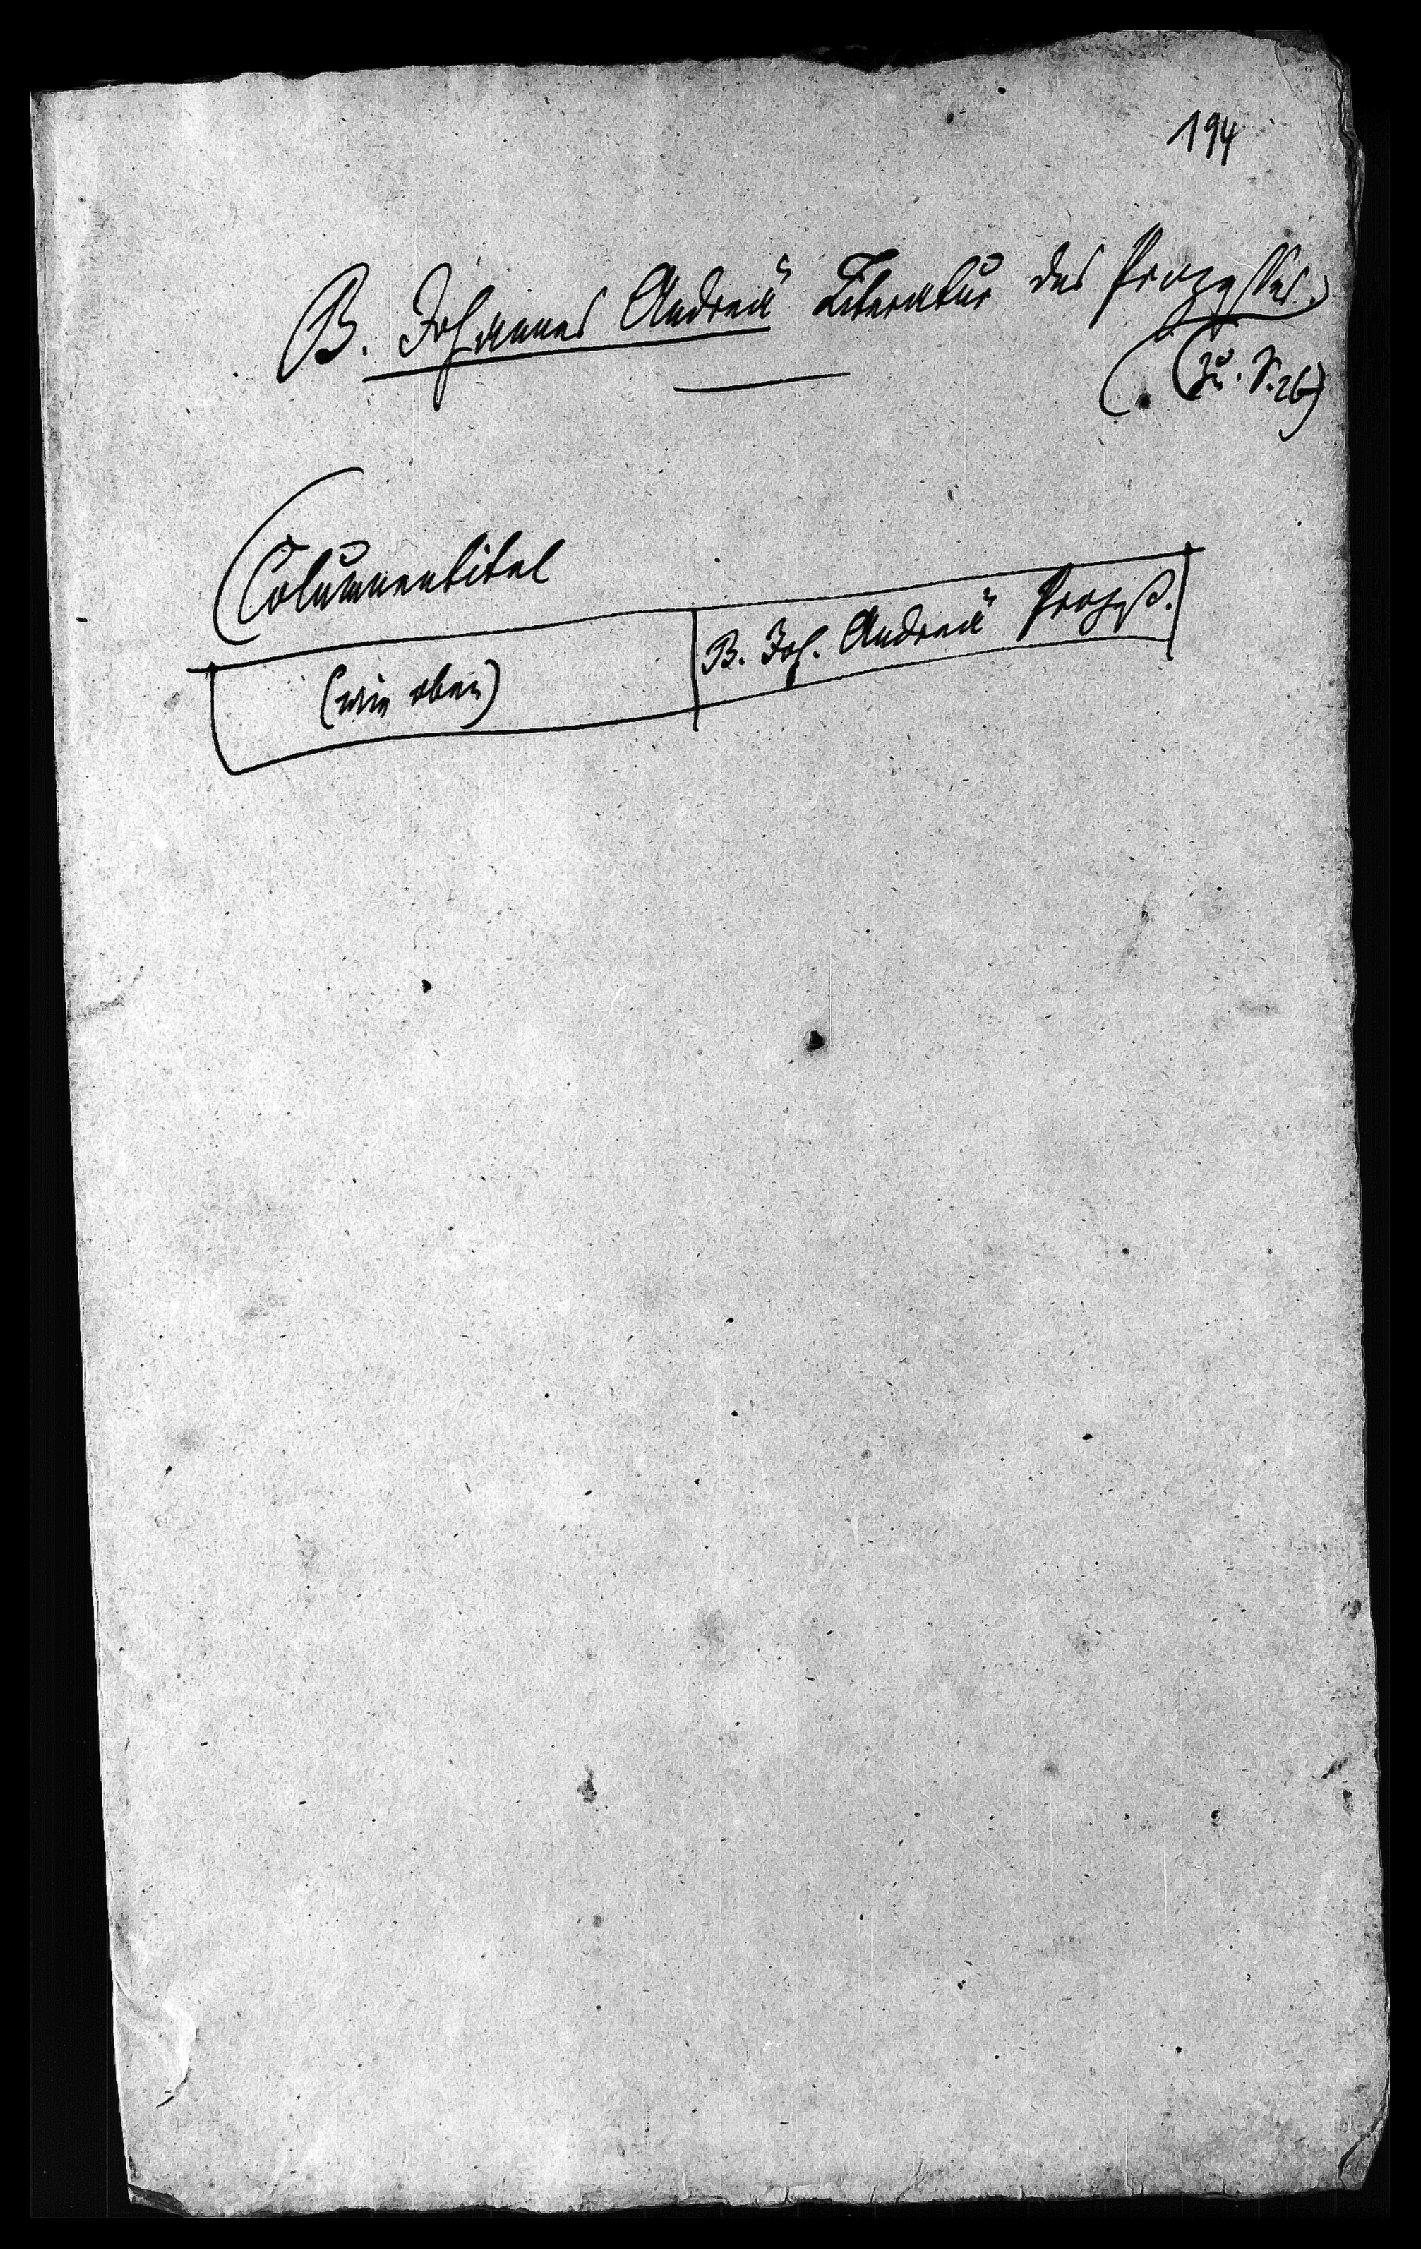 194
B. Johannes Andreä Literatur des Prozesses.
(Zu. S. 26)
Columnentitel
(wie oben)
B. Joh. Andreä Prozeß.